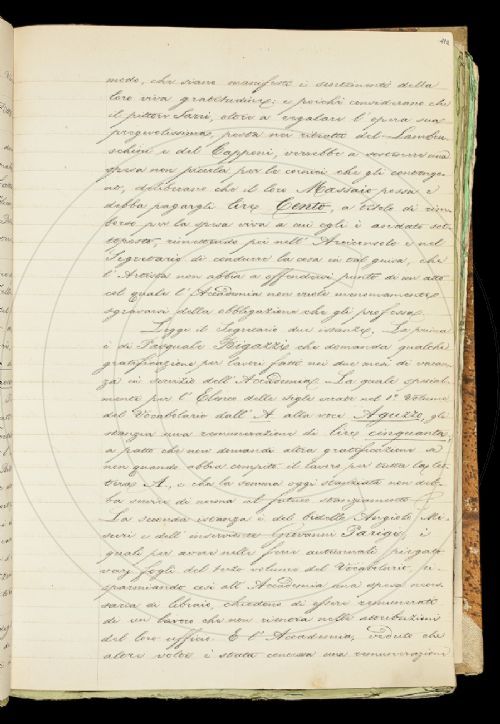 modo, che siano manifesti i sentimenti della
loro viva gratitudine; e poichè considerano che
il pittore Sarri, oltre a regalare l'opera sua
pregevolissima, posta nei ritratti del Lambru-
schini e del Capponi, verrebbe a sostenere una
spesa non piccola per le cornici che gli convengo-
no, deliberano che il loro Massaio possa e
debba pagargli lire Cento, a titolo di rim-
borso per la spesa viva a cui egli è andato sot-
toposto, rimettendo poi nell'Arciconsolo e nel
Segretario di condurre la cosa in tal guisa, che
l'Artista non abbia a offendersi punto di un atto
col quale l'Accademia non vuole menomamente
sgravarsi della obbligazione che gli professa.
Legge il Segretario due istanze. La prima
è di Pasquale Bigazzi che domanda qualche
gratificazione per lavori fatti nei due mesi di vacan-
za in servizio dell'Accademia. La quale special-
mente per l'Elenco delle sigle usate nel 1º Volume
del Vocabolario dall'A alla voce Aguzzo, gli
stanzia una remunerazione di lire cinquanta,
a patto che non domandi altra gratificazione se
non quando abbia compito il lavoro per tutta la let-
tera A, e che la somma oggi stanziata non deb-
ba servire di norma al futuro stanziamento.
La seconda istanza è del bidello Angiolo Mi-
suri e dell'inserviente Giovanni Parigi, i
quali per avere nelle ferie autunnali piegato
varj fogli del terzo volume del Vocabolario, ri-
sparmiando così all'Accademia una spesa neces-
saria di libraio, chiedono di essere remunerati
di un lavoro che non rientra nelle attribuzioni
del loro ufficio. E l'Accademia, veduto che
altre volte è stata concessa una remunerazione